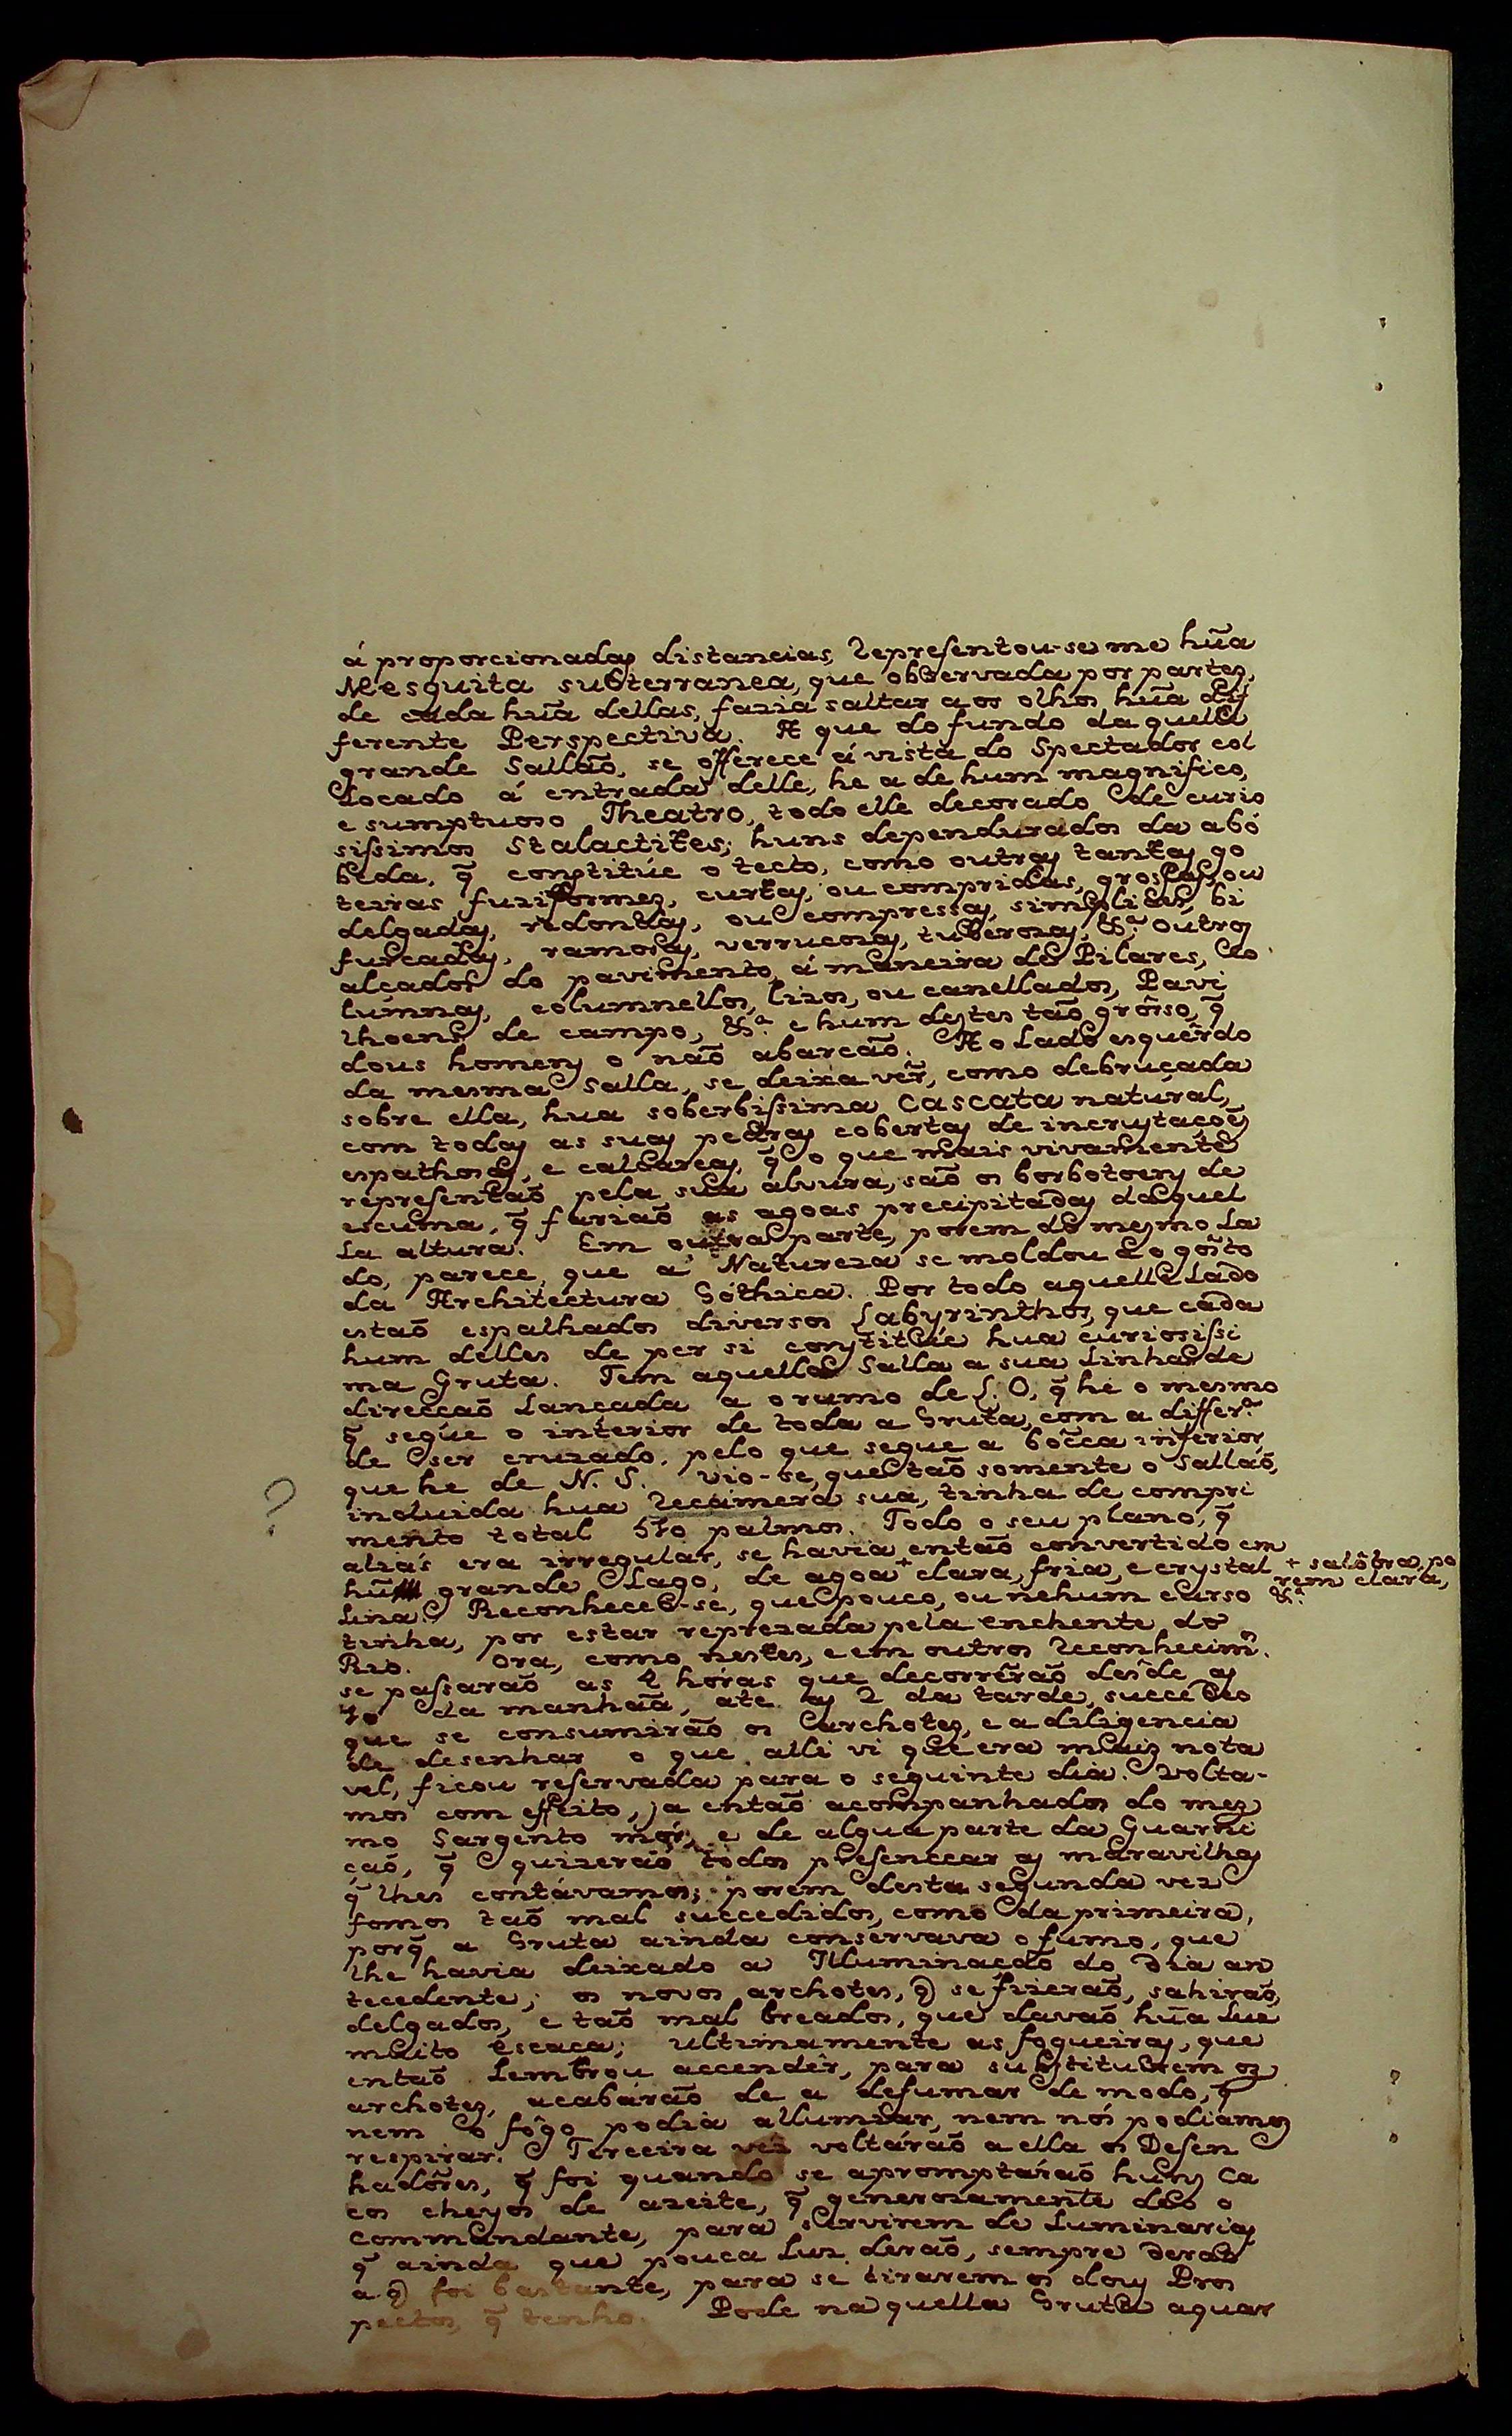 á proporcionadas distancias, representou-se me hũa
Mesquita subterranea, que observada por partes,
de cada hũa dellas, fazia saltar aos olhos hũa dif
ferente Perspectiva. A que do fundo daquelle
grande Sallaõ, se offerece á vista do Spectador col
locado á entrada delle, he a de hum magnifico,
e sumptuoso Theatro, todo elle decorado de curio
sissimos Stalactites; huns dependurados da abó
beda, q̃ constitúe o tecto, como outras tantas go
teiras fuziformes, curtas, ou compridas, grossas, ou
delgadas, redondas, ou compressas, simplices, bi
furcadas, ramosas, verrucosas, tuberosas, &ª. outros
alçados do pavimento, á maneira de Pilares, Co
lúmnas, columnellos, lizos, ou canellados, Pavi
lhoens de campo, &ª. e hum destes taõ grôsso, q̃
dous homens o naõ abarcaõ. Ao lado esquêrdo
da mesma Salla, se deixa vêr, como debruçada
sobre ella, hua soberbissima Cascata natural,
com todas as suas pedras cobertas de incrustaçoẽs
espathosas, e calcareas, q̃ o que mais vivamente
representaõ pela sua alvura, saõ os borbotoens de
escuma, q̃ fariaõ as agoas precipitadas daquel
la altura. Em outra parte, porem do mesmo la
do, parece, que a Natureza se moldou ao gôsto
da Architectura Góthica. Por todo aquelle lado
estaõ espalhados diversos Labyrinthos, que cada
hum delles de per si constitúe hua curiosissi
ma Gruta. Tem aquella Salla a sua linha de
direcçaõ lançada a o rumo de L. O, q̃ hé o mesmo
q̃ segúe o intérior de toda a Gruta, com a differ.ª
de ser cruzado, pelo que segue a bôcca inferior,
que he de N. S. Vio-se, que taõ somente o Sallaõ,
incluida hua recámera sua, tinha de compri
mento total 570 palmos. Todo o seu plano, q̃
aliás era irregular, se havia entaõ convertido em
hũ grande Lago, de agoa + clara, fria, e crystal
+ salôbra, po
rem clara,
&ª.
lina. Reconheceo-se, que pouco, ou nehum curso
tinha, por estar reprezada pela enchente do
Rio. Ora, como nestes, e em outros reconhecim.ᵒˢ
se passaraõ as 4 hóras que decorrêraõ desde as
10 da manhaã, ate as 2 da tarde, succedeo
que se consumiraõ os archotes, e a diligencia
de desenhar o que alli vi que era mais nota
vel, ficou reservada para o seguinte dia. Volta-
mos com effeito, ja entaõ acompanhados do mes
mo Sargento mór, e de algua parte da Guarni
çaõ, q̃ quizeraõ todos presencear as maravilhas
q̃ lhes contávamos; porem desta segunda vez
fomos taõ mal succedidos, como da primeira,
porq̃ a Gruta ainda conservava o fumo, que
lhe havia deixado a Illuminaçaõ do dia an
tecedente; os novos archotes, q̃ se fizeraõ, sahiraõ
delgados, e taõ mal breados, que davaõ hũa luz
muito escaça; ultimamente as fogueiras, que
entaõ lembrou accendêr, para substituirem os
archotes, acabáraõ de a defumar de modo, q̃
nem o fôgo podia allumiar, nem nós podiamos
respirar. Terceira vez voltáraõ a ella os Desen
hadôres, q̃ foi quando se apromptáraõ huns Ca
cos cheyos de azeite, q̃ generosamente deo o
Commandante, para servirem de luminarias
q̃ ainda que pouca luz deraõ, sempre deraõ
a q̃ foi bastante, para se tirarem os dous Pros
pectos, q̃ tenho. Pode naquella Gruta aquar
?